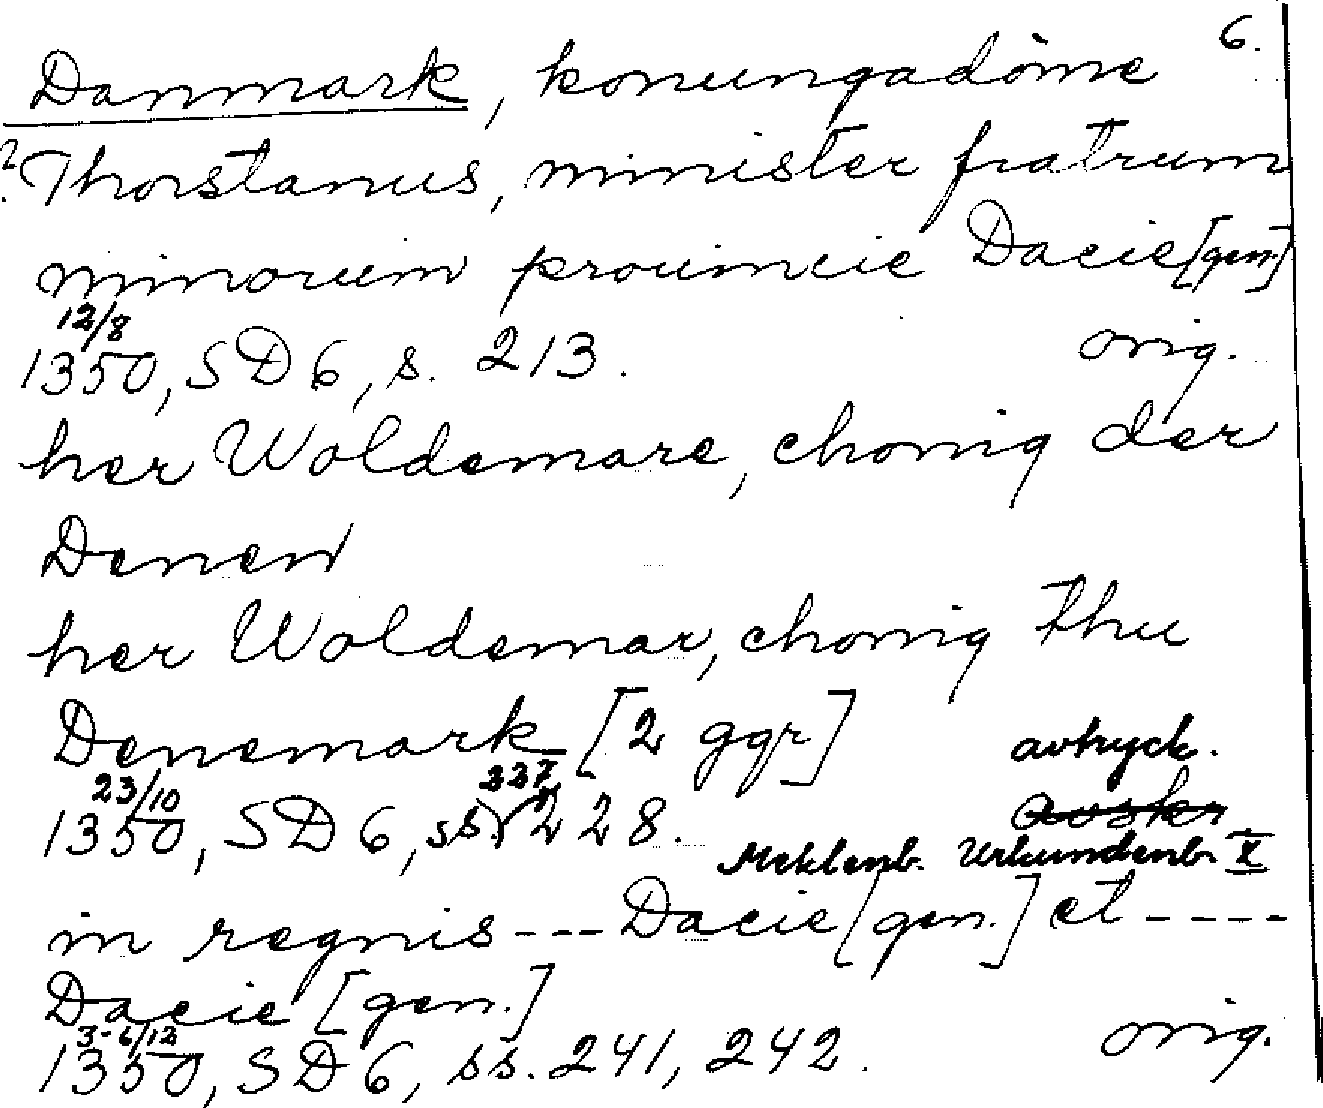 6.
Danmark, konungadöme
? Thorstanus, minister fratrum
minorum prouincie Dacie [gen.]
12/8
1350, SD 6, s. 213. orig.
her Woldemare, chonig der
Denen
her Woldemar, chonig thu
Denemark [2 ggr] avtryck.
23/10 337,
1350, SD 6, ss. 228. avskr
Meklenb. Urkundenb. X
in regnis --- Dacie [gen.] et ----
Dacie [gen.]
3-6/12
1350, SD 6, ss. 241, 242. orig.